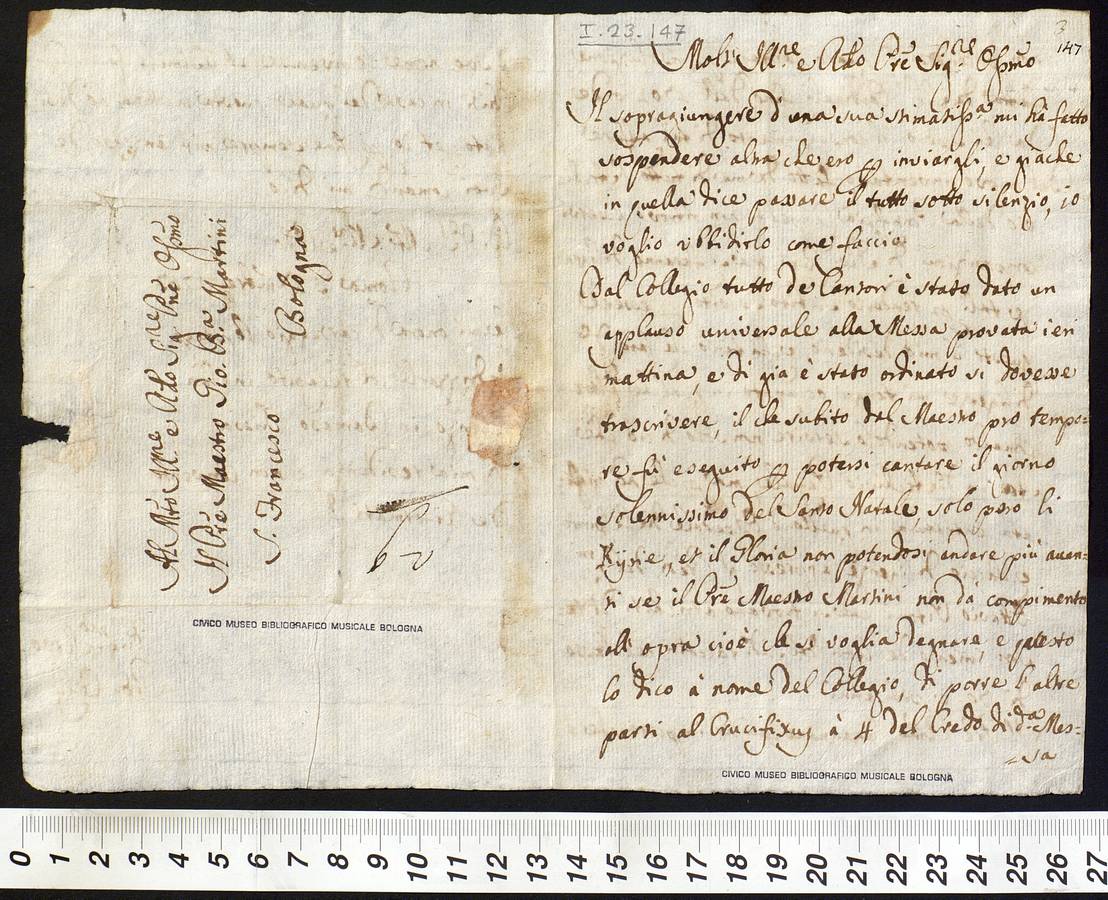 Al Mto Illre e Ado Sigre Pne
Sig. Pne Ossmo
Il Pre Maestro Gio: Ba Martini
S. Francesco
Bologna
CIVICO MUSEO BIBLIOGRAFICO MUSICALE BOLOGNA
I.23.147
3
147
Molt' Illre e Ado Pre Sigre Ossmo
Il sopragiungere d'una sua stimatissa mi hà fatto
sospendere altra che ero per inviargli, e giache
in quella dice passare il tutto sotto silenzio, io
voglio ubbidirlo come faccio
Dal Collegio tutto de Cantori è stato dato un
applauso universale alla Messa provata ieri
mattina, e di gia è stato ordinato si dovesse
trascrivere, il che subito dal Maestro pro tempo=
re fu eseguito per potersi cantare il giorno
solennissimo del Santo Natale, solo però li
Kyrie, et il Gloria non potendosi andare più avan=
ti se il Pre Maestro Martini non dà compimento
all'opra cioè che si voglia degnare, e questo
lo dico à nome del Collegio, di porre l'altre
parti al Crucifixus à 4 del Credo di da Mes=
=sa
CIVICO MUSEO BIBLIOGRAFICO MUSICALE BOLOGNA
0 1 2 3 4 5 6 7 8 9 10 11 12 13 14 15 16 17 18 19 20 21 22 23 24 25 26 27